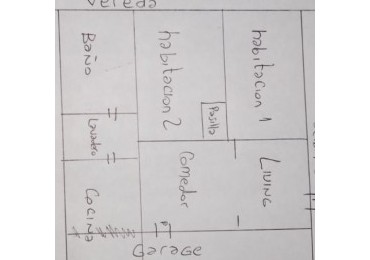 Baño
habitacion 2
habitacion 1
Pasillo
Lavadero
Cocina
Comedor
LIVING
Garage